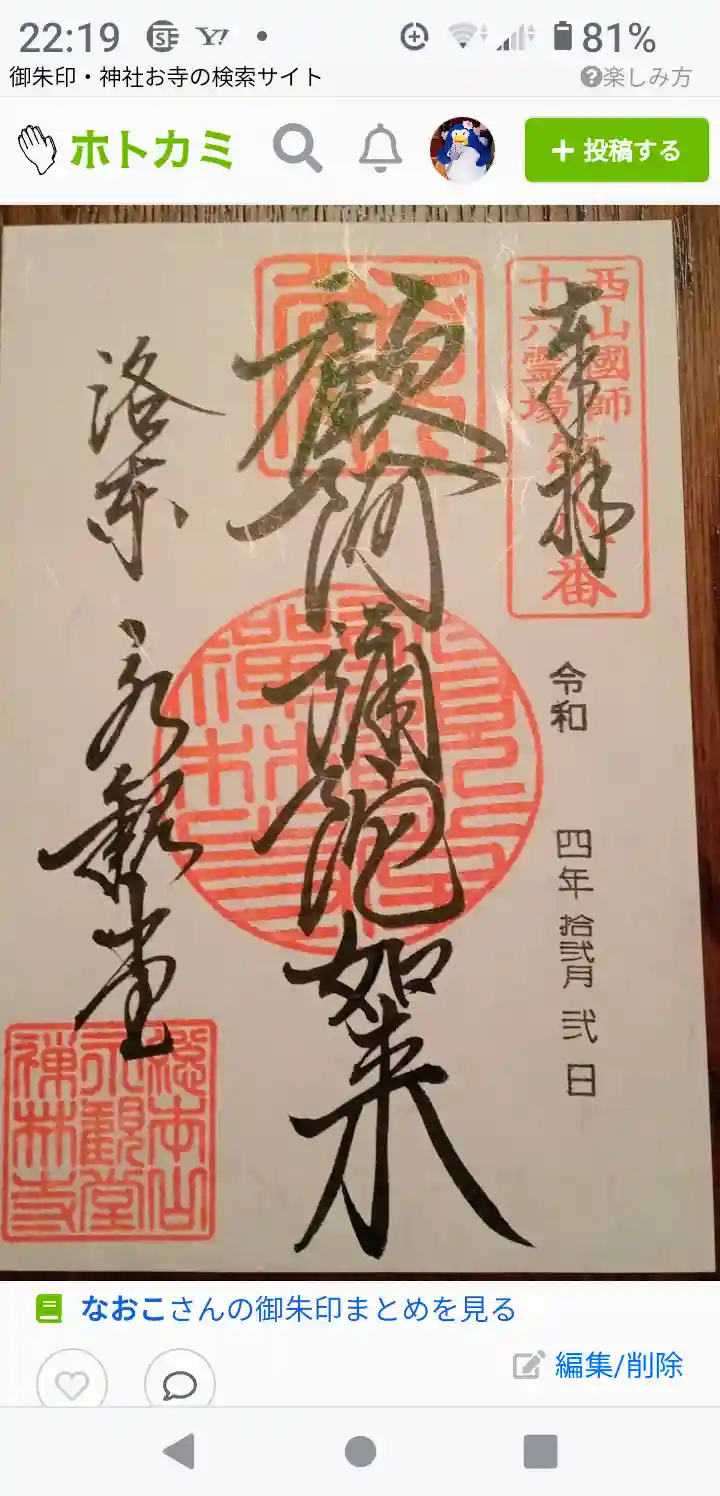 22:19
81%
御朱印・神社お寺の検索サイト
?楽しみ方
ホトカミ
+ 投稿する
西山國師
十六霊場
番
奉拝
令和 四年 拾弐月 弐 日
顧阿彌陀如来
洛東 永観堂
總本山
永觀堂
禅林寺
なおこさんの御朱印まとめを見る
編集/削除